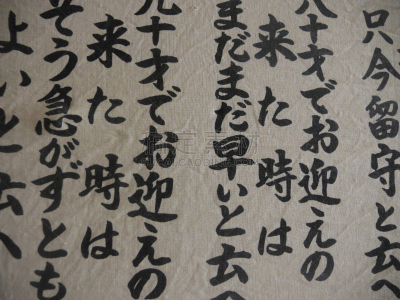 只今留守と云へ
八十才でお迎えの
来た時は
まだまだ早いと云へ
九十才でお迎えの
来た時は
そう急がずとも
よいと云へ